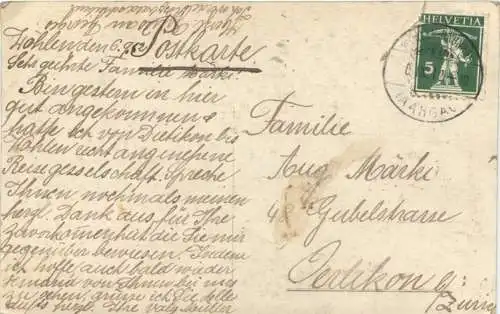 Postkarte
Wohlen den 6.
Sehr geehrte Familie Märki!
Bin gestern in hier
gut angekommen &
hatte ich von Dietikon bis
Wohlen recht angenehme
Reisegesellschaft. Spreche
Ihnen nochmals meinen
herzl. Dank aus, für Ihr
zuvorkommen hat die Sie mir
gegenüber bewiesen. Indem
ich hoffe, auch bald wieder
jemand von Ihnen bei mir
zu sehen, grüsse ich Sie alle
aufs herzl. Ihre
HELVETIA
5
AARGAU
Familie
Aug. Märki
48 Gubelstrasse
Oerlikon b/
Zürich